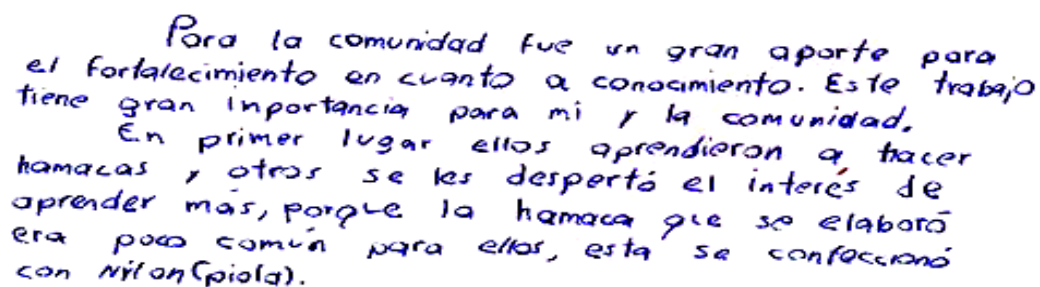 Para la comunidad fue un gran aporte para
el fortalecimiento en cuanto a conocimiento. Este trabajo
tiene gran importancia para mi y la comunidad.
En primer lugar ellos aprendieron a hacer
hamacas y otros se les despertó el interés de
aprender más, porque la hamaca que se elaboró
era poco común para ellos, esta se confeccionó
con Nilon (piola).